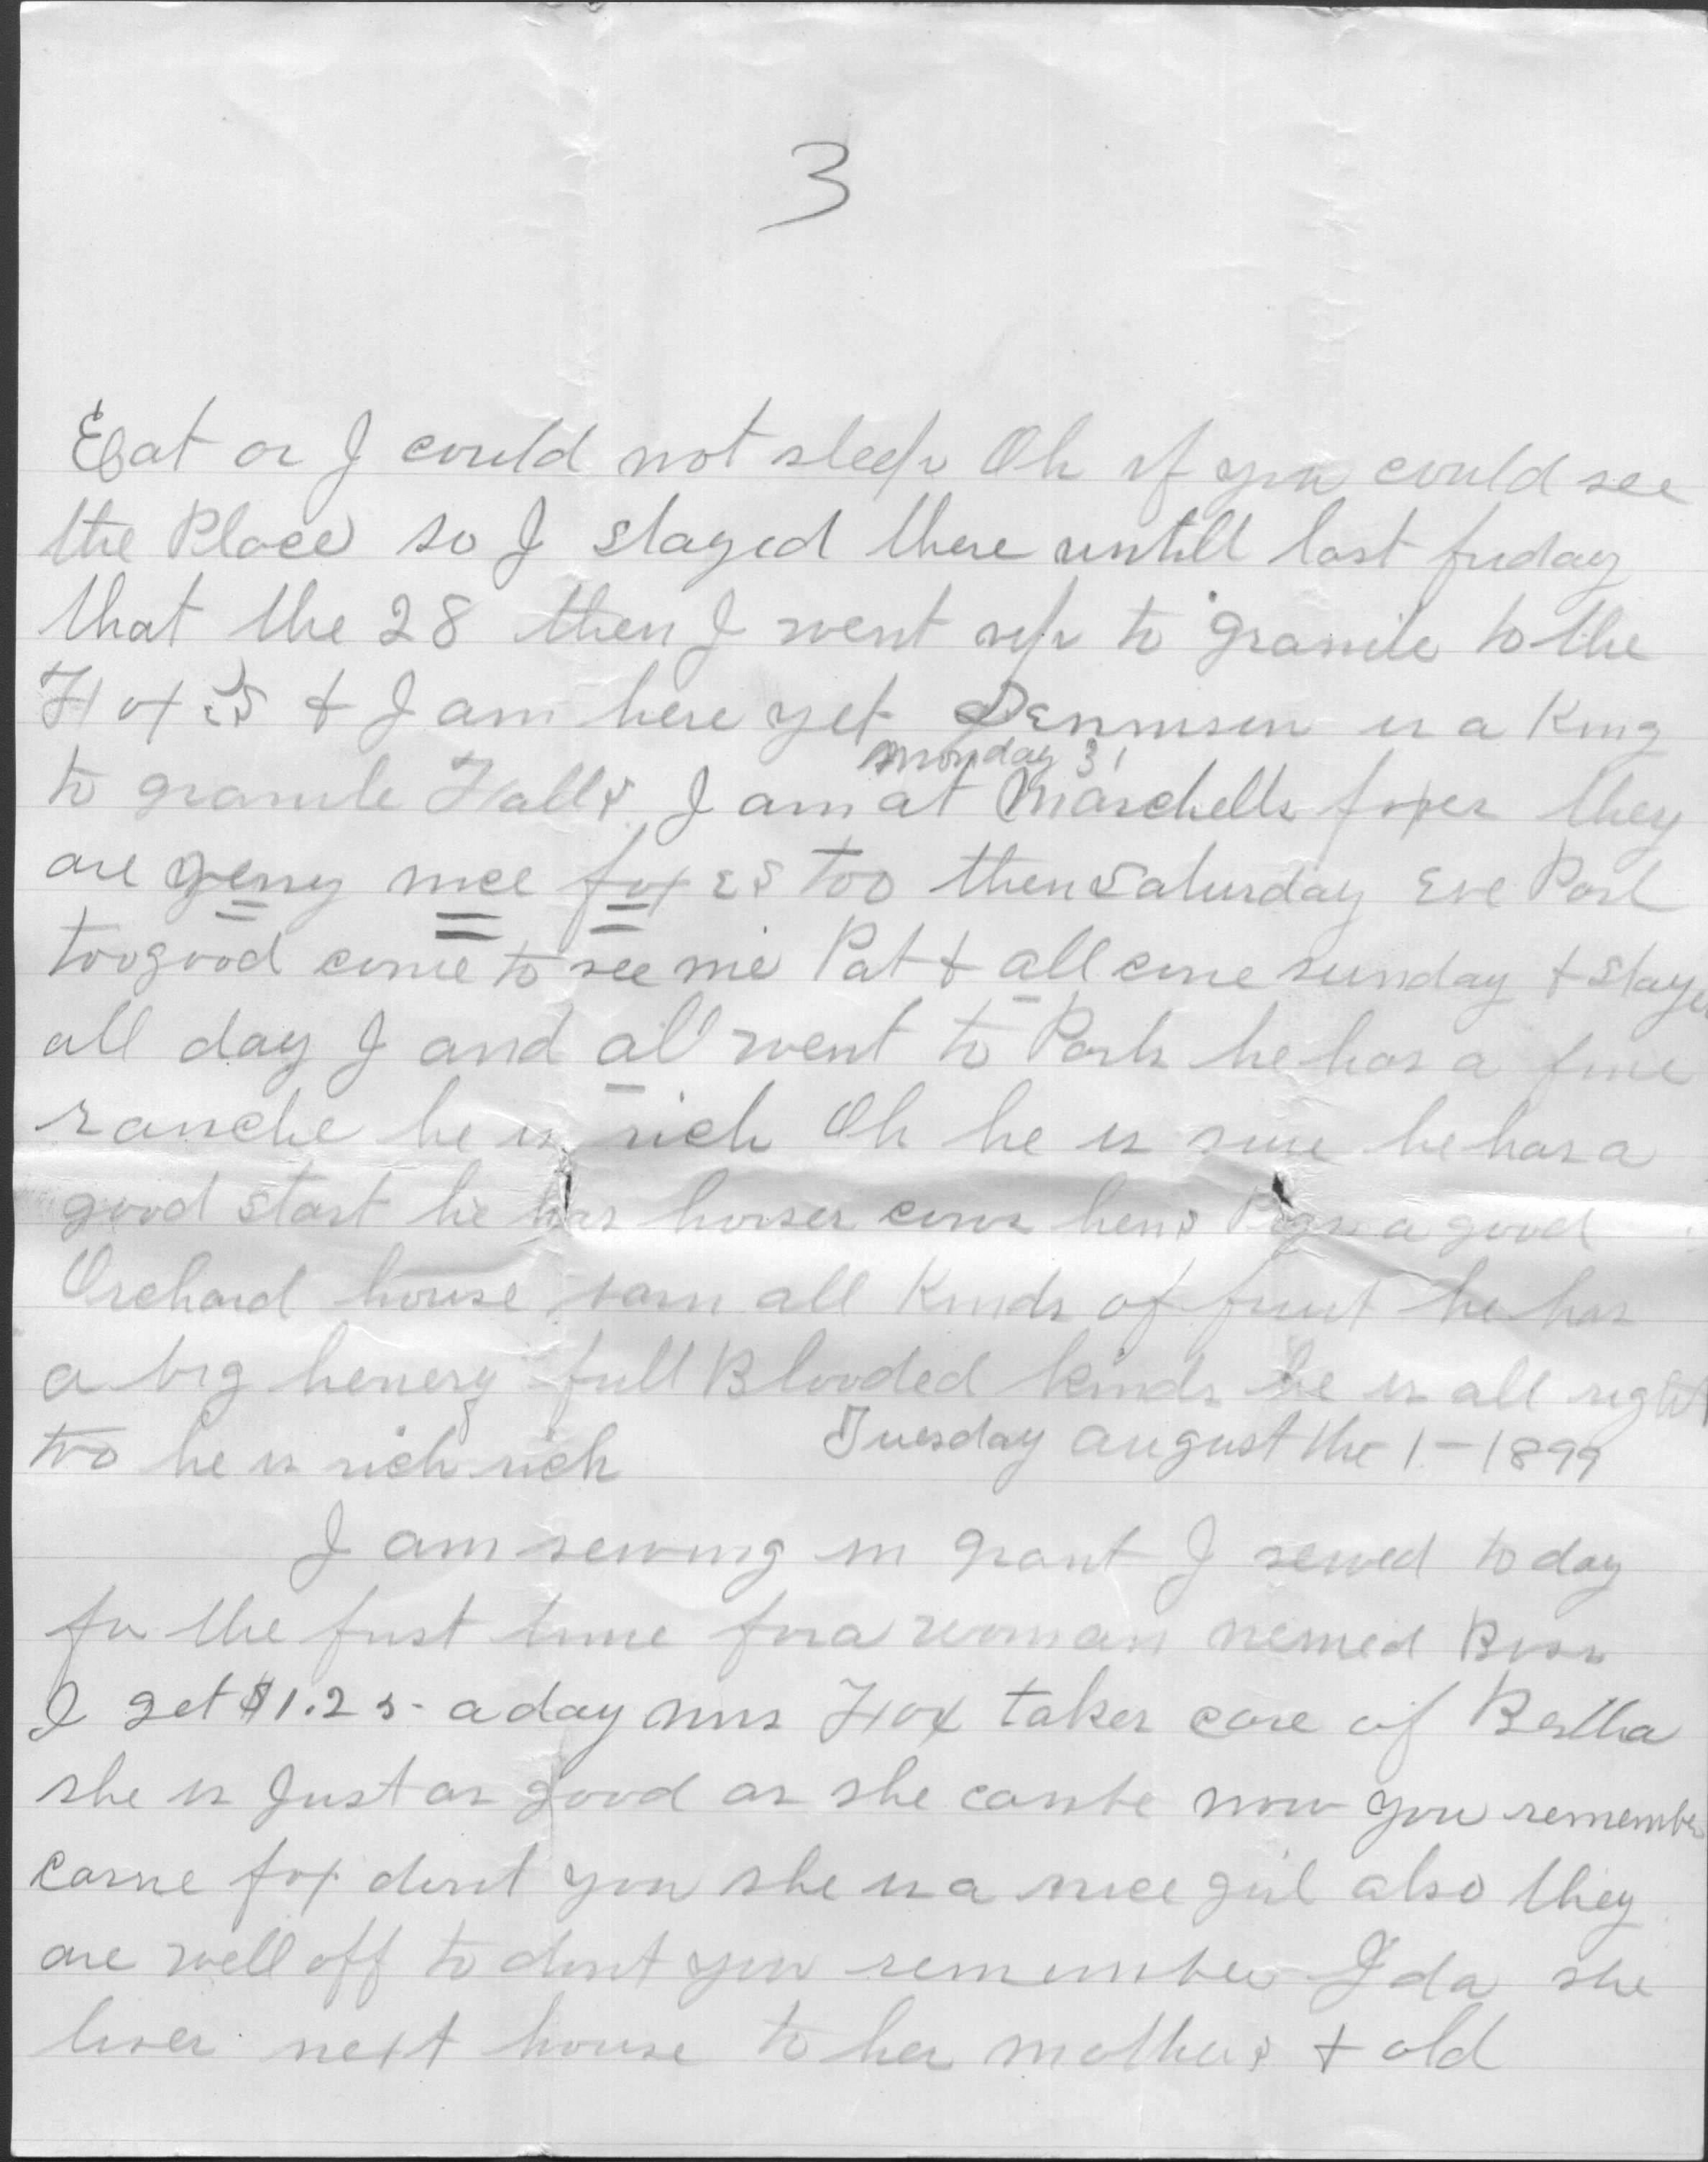 3
Eat or I could not sleep Oh if you could see
the Place so I stayed there untill last friday
that the 28 then I went up to granite to the
Fox s & I am here yet Dennisen is a King
monday 31
to granite Falls I am at Marchells foxes they
are very nice foxes too then saturday Eve Park
toogood come to see me Pat & all come sunday & stayed
all day I and al went to Parks he has a fine
ranche he is rich Oh he is sure he has a
good start he has horses cows hens Pigs a good
Orchard house barn all Kinds of fruit he has
a big henery full Blooded kinds he is all right
too he is rich rich
Tuesday august the 1 - 1899
I am sewing in grant I sewed to day
for the first time for a woman nemed
I get $1.25 a day mrs Fox takes care of Bertha
she is Just as good as she can be now you remember
Carrie fox dont you she is a nice girl also they
are well off to dont you remember Ida she
lives next house to her mothers & old